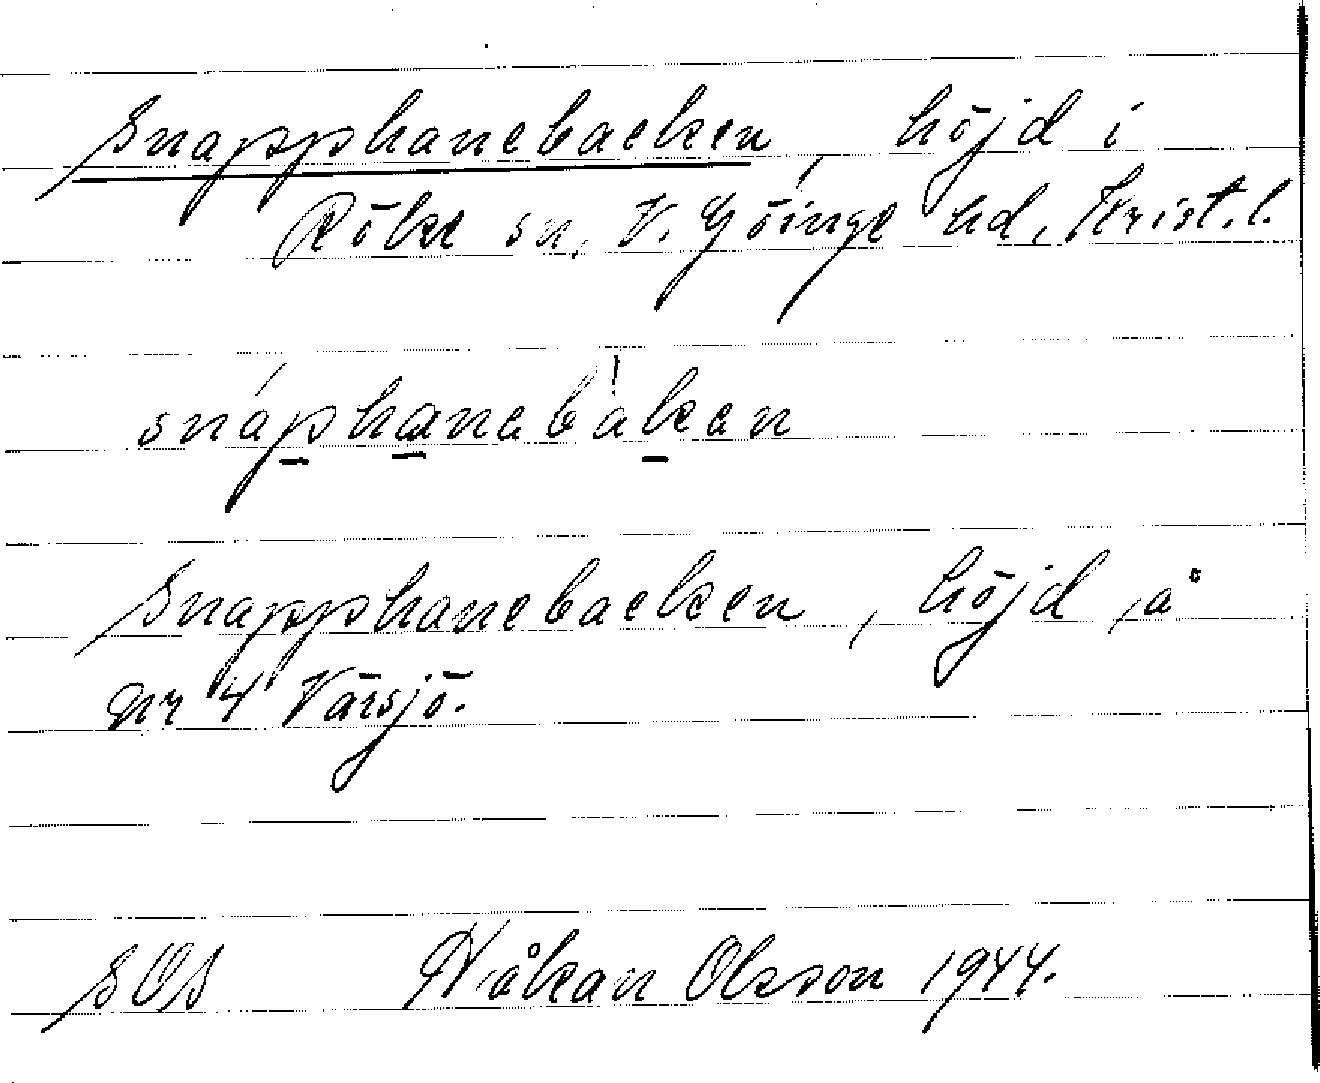 Snapphanebacken, höjd i
Röke sn, V. Göinge hd, Krist. l.
snáphanebàken
Snapphanebacken, höjd, å
nr 4 Värsjö.
SOS Håkan Olsson 1944.